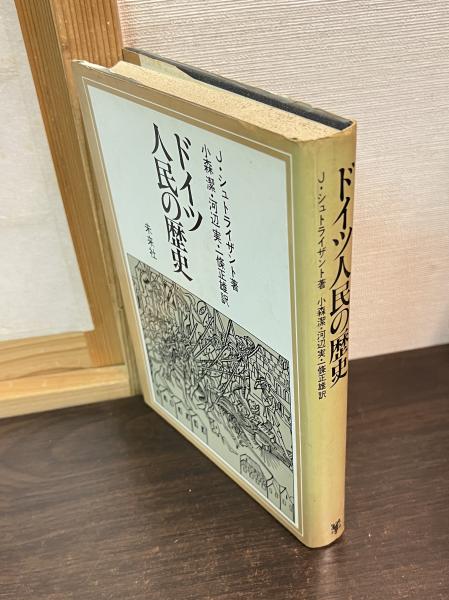 ドイツ
人民の歴史
J・シュトライザント著
小森潔・河辺実・一條正雄訳
未来社
ドイツ人民の歴史
J・シュトライザント著 小森潔・河辺実・一條正雄訳